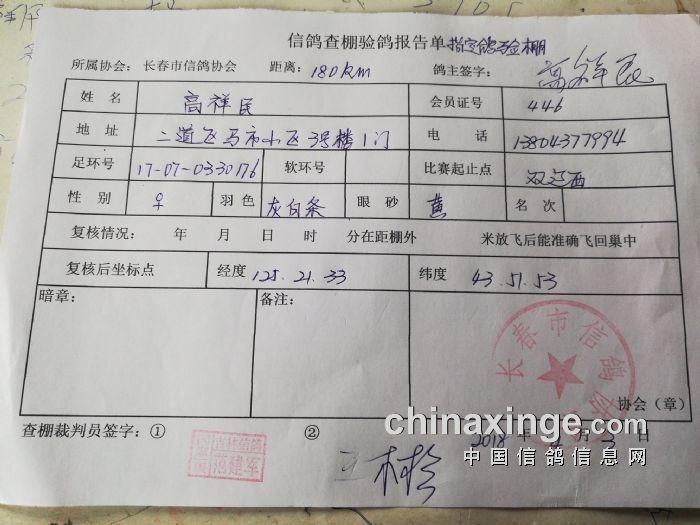 信鸽查棚验鸽报告单 指定鸽验棚
所属协会: 长春市信鸽协会 距离: 180km 鸽主签字: 高祥民
姓名 高祥民 会员证号 446
地址 二道区马市小区3号楼1门 电话 13804377994
足环号 17-07-0330176 软环号 比赛起止点
性别 ♀ 羽色 灰白条 眼砂 黄 名次
复核情况: 年 月 日 时 分在距棚外 米放飞后能准确飞回巢中
复核后坐标点 经度 125.21.33 纬度 43.51.53
暗章: 备注:
长春市信鸽协
协会（章）
查棚裁判员签字: ① ②
吉林信鸽
范建军
2018 年 月 3 日
chinaxinge.com
中国信鸽信息网